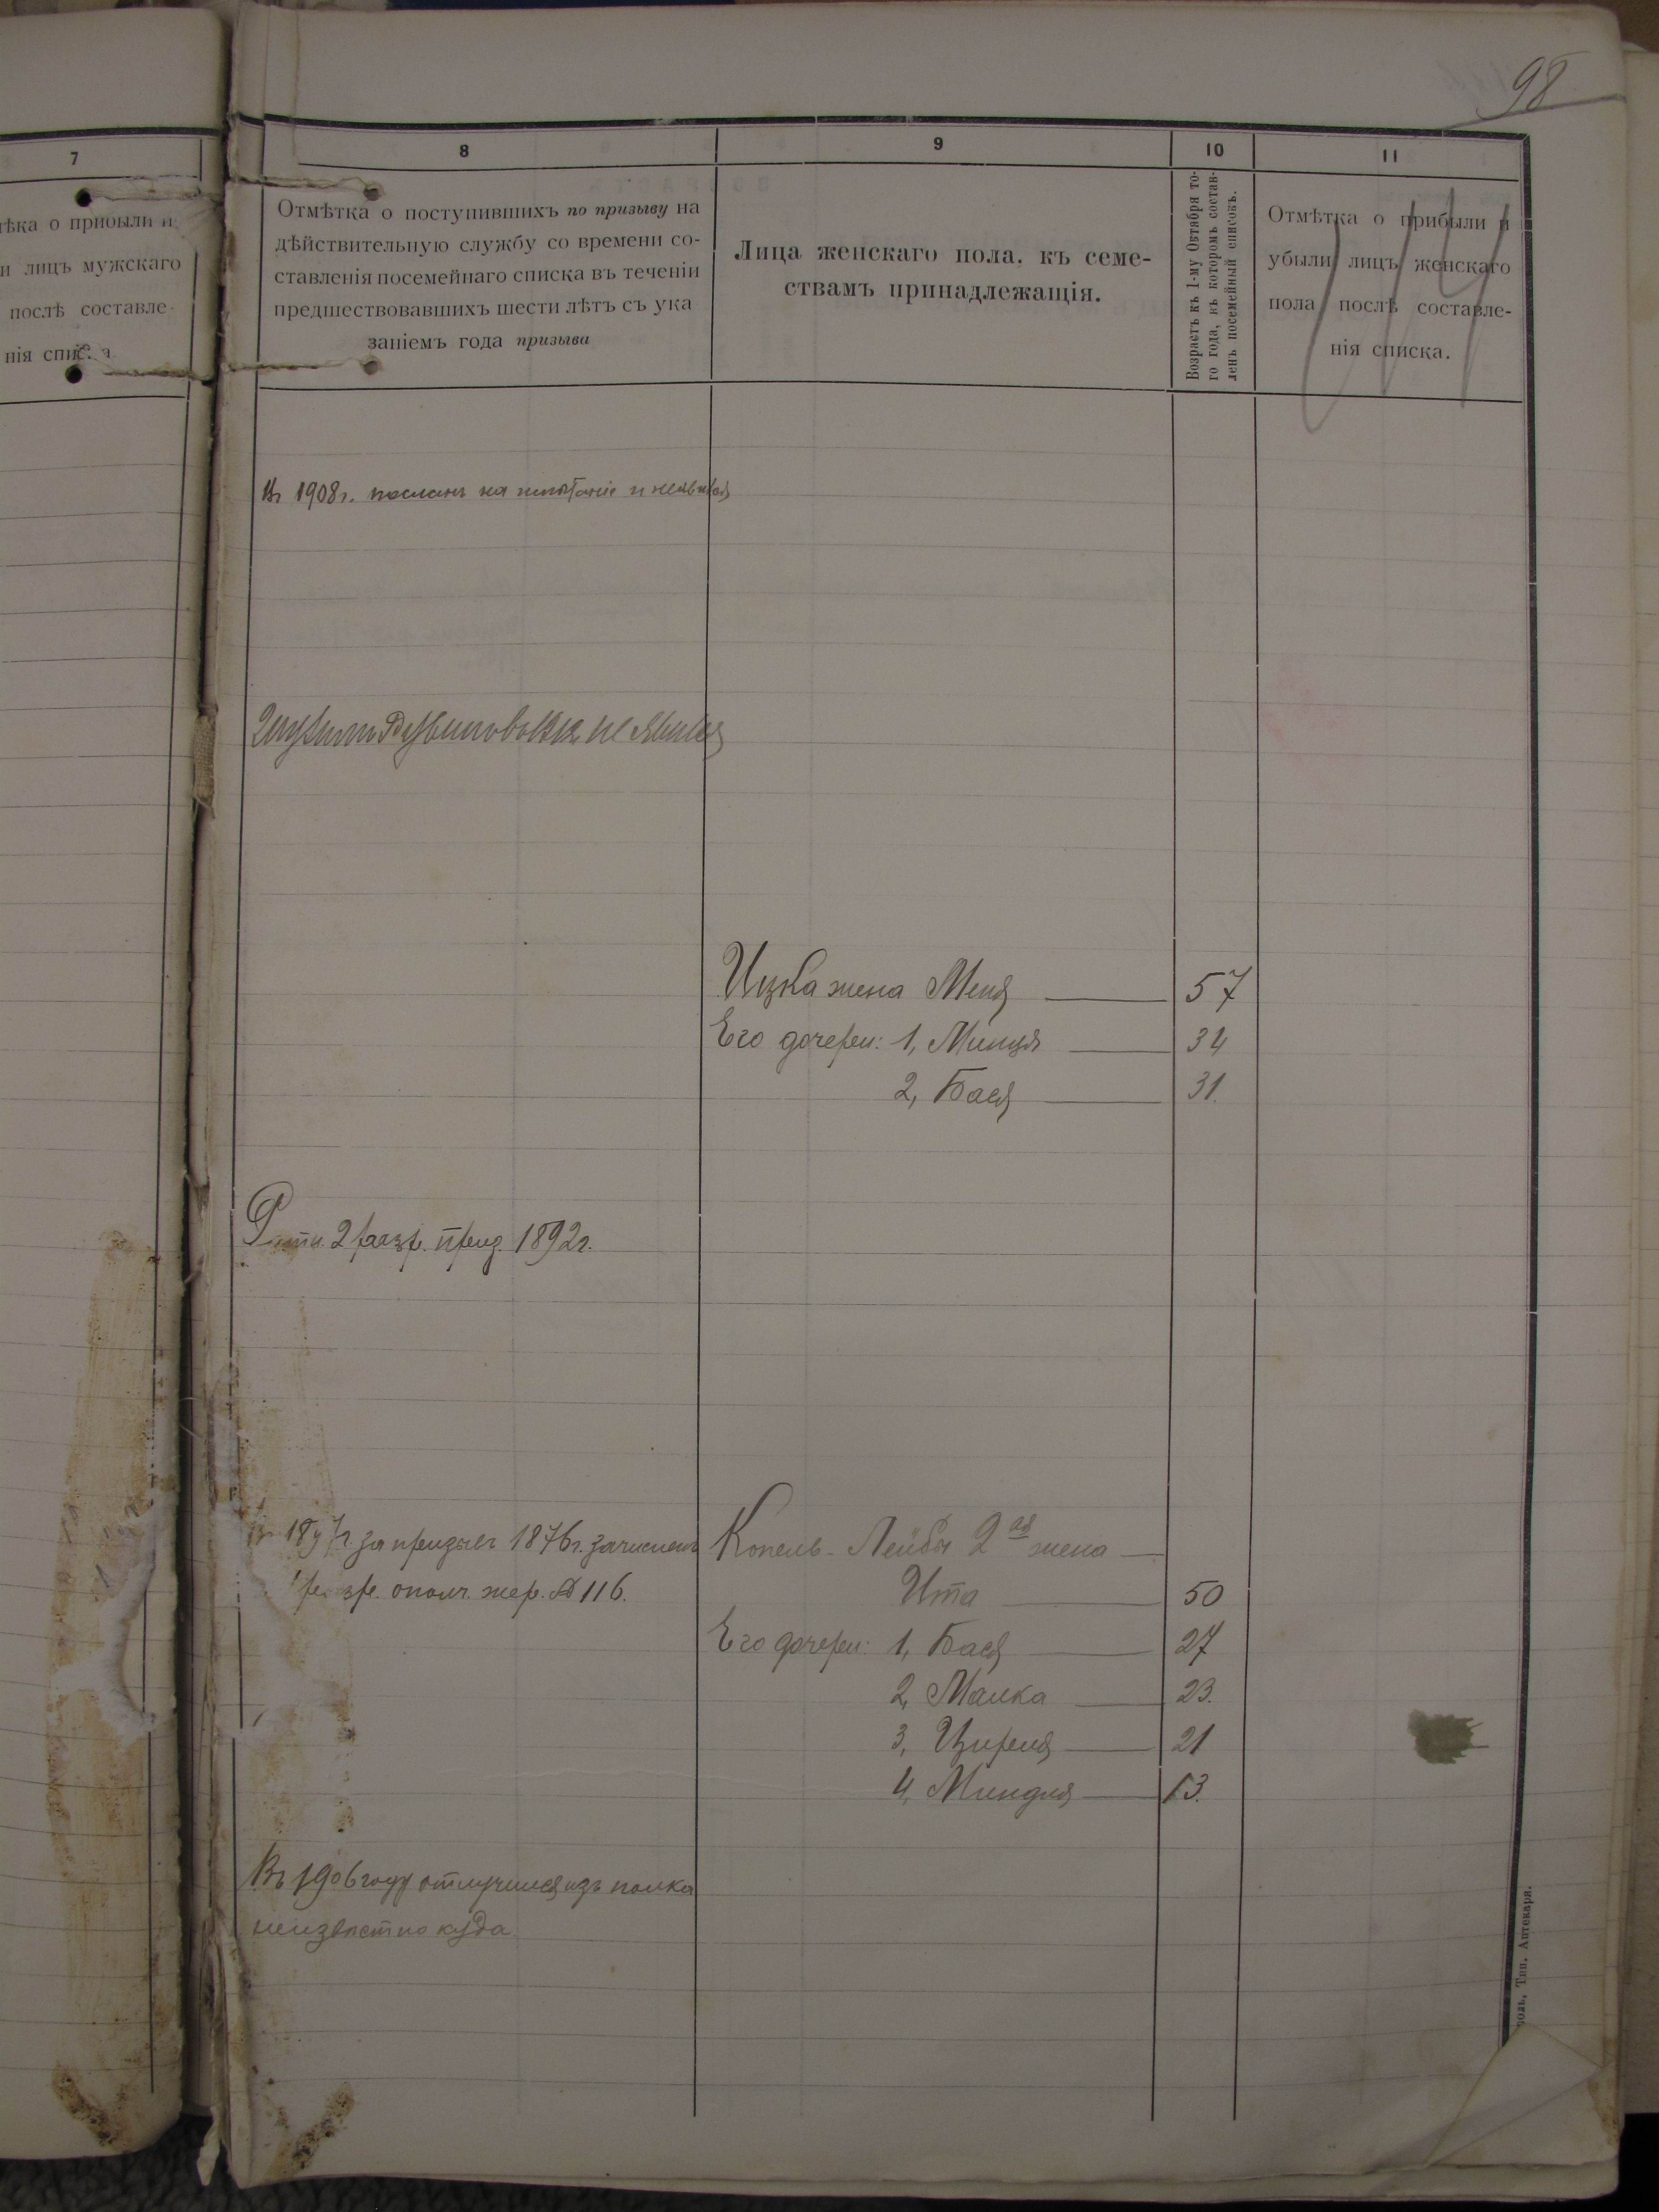 98
7
прибыли и
и лицъ мужскаго
послѣ составле-
нія списка
8
Отмѣтка о поступившихъ по призыву на
дѣйствительную службу со времени со-
ставленія посемейнаго списка въ теченіи
предшествовавшихъ шести лѣтъ съ ука
заніемъ года призыва
9
Лица женскаго пола. къ семе-
ствамъ принадлежащія.
10
Возрастъ къ 1-му Октября то-
го года, къ которомъ состав-
ленъ посемейный списокъ.
11
Отмѣтка о прибыли и
убыли лицъ женскаго
пола послѣ составле-
нія списка.
Въ 1908 г. посланъ на испытаніе и неявился
не явился
Ицка жена Меня 57
Его дочери: 1, Минця 34
2, Бася 31.
Ратн. 2 разр. приз. 1892 г.
за призывъ 1876 г. зачисленъ
разр. ополч. жер. № 116.
Копель-Лейбы 2ая жена
Ита 50
Его дочери: 1, Бася 27
2, Малка 23.
3, Циреля 21
4, Миндля 13.
Въ 1906 году отлучился изъ полка
неизвѣстно куда
Тип. Аптекаря.